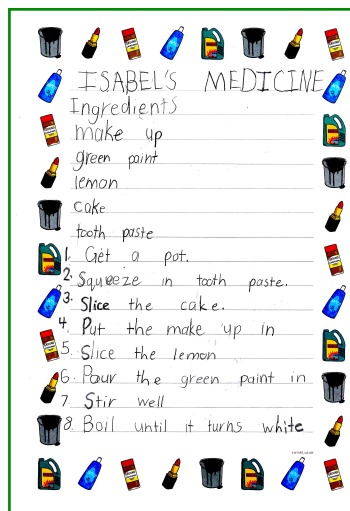 ISABEL'S MEDICINE
Ingredients
make up
green paint
lemon
cake
tooth paste
1. Get a pot.
2. Squeeze in tooth paste.
3. Slice the cake.
4. Put the make up in
5. Slice the lemon
6. Pour the green paint in
7. Stir well
8. Boil until it turns white